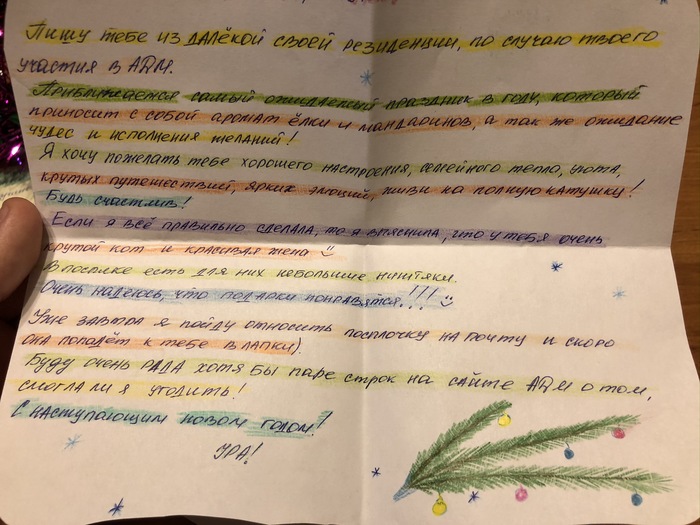 Пишу тебе из далёкой своей резиденции, по случаю твоего
участия в АДМ.
Приближается самый ожидаемый праздник в году, который
приносит с собой аромат ёлки и мандаринов, а так же ожидание
чудес и исполнения желаний!
Я хочу пожелать тебе хорошего настроения, семейного тепла, уюта,
крутых путешествий, ярких эмоций, живи на полную катушку!
Будь счастлив!
Если я всё правильно сделала, то я выяснила, что у тебя очень
крутой кот и красивая жена
В посылке есть для них небольшие ништяки.
Очень надеюсь, что подарки понравятся...!!!
Уже завтра я пойду относить посылочку на почту и скоро
она попадёт к тебе в лапки).
Буду очень рада хотя бы паре строк на сайте АДМ о том,
смогла ли я угодить!
С наступающим новом годом!
УРА!